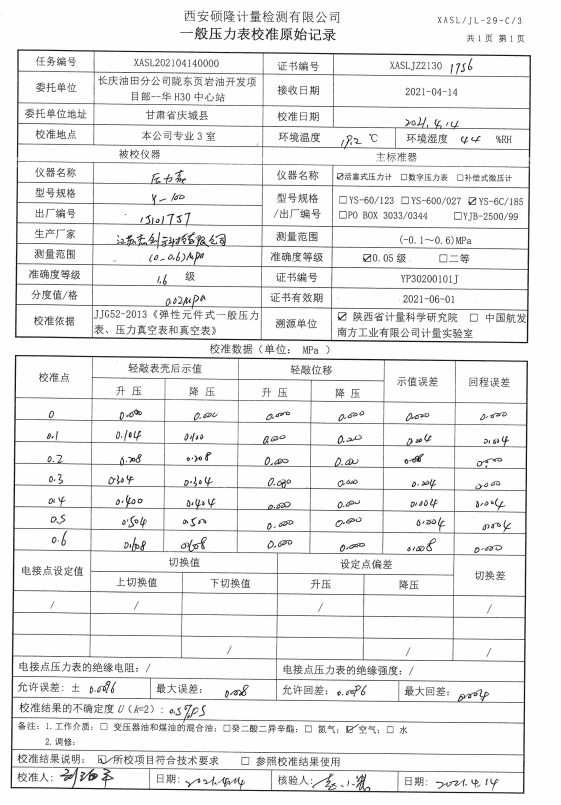 西安硕隆计量检测有限公司
XASL/JL-29-C/3
一般压力表校准原始记录
共1页 第1页
任务编号 XASL202104140000 证书编号 XASLJZ2130 1756
委托单位 长庆油田分公司陇东页岩油开发项目部--华H30中心站 接收日期 2021-04-14
委托单位地址 甘肃省庆城县 校准日期 2021.4.14
校准地点 本公司专业3室 环境温度 19.2 ℃ 环境湿度 44 %RH
被校仪器 主标准器
仪器名称 压力表 仪器名称 ☑活塞式压力计 □数字压力表 □补偿式微压计
型号规格 Y-100 型号规格/出厂编号 □YS-60/123 □YS-600/027 ☑YS-6C/185
出厂编号 15101757 □PO BOX 3033/0344 □YJB-2500/99
生产厂家 测量范围 (-0.1~0.6)MPa
测量范围 (0-0.6)Mpa 准确度等级 ☑0.05级 □二等
准确度等级 1.6 级 证书编号 YP30200101J
分度值/格 0.02Mpa 证书有效期 2021-06-01
校准依据 JJG52-2013《弹性元件式一般压力表、压力真空表和真空表》 溯源单位 ☑ 陕西省计量科学研究院 □ 中国航发南方工业有限公司计量实验室
校准数据(单位: MPa )
校准点 轻敲表壳后示值 轻敲位移 示值误差 回程误差
升 压 降 压 升 压 降 压
0 0.000 0.000 0.000 0.000 0.000 0.000
0.1 0.104 0.100 0.000 0.000 0.004 0.004
0.2 0.208 0.208 0.000 0.000 0.008 0.000
0.3 0.304 0.304 0.000 0.000 0.004 0.000
0.4 0.400 0.404 0.000 0.000 0.004 0.004
0.5 0.504 0.500 0.000 0.000 0.004 0.004
0.6 0.608 0.608 0.000 0.000 0.008 0.000
电接点设定值 切换值 设定点偏差 切换差
上切换值 下切换值 升压 降压
/ / / /
/ /
电接点压力表的绝缘电阻: / 电接点压力表的绝缘强度: /
允许误差: ± 0.0096 最大误差: 0.008 允许回差: 0.0096 最大回差: 0.004
校准结果的不确定度 U (k=2): 0.5%FS
备注: 1.工作介质: □ 变压器油和煤油的混合油; □癸二酸二异辛酯; □ 氮气; ☑空气; □ 水
2.调修:
校准结果说明: ☑所校项目符合技术要求 □ 参照校准结果使用
校准人: 日期: 2021.4.14 核验人: 日期: 2021.4.14